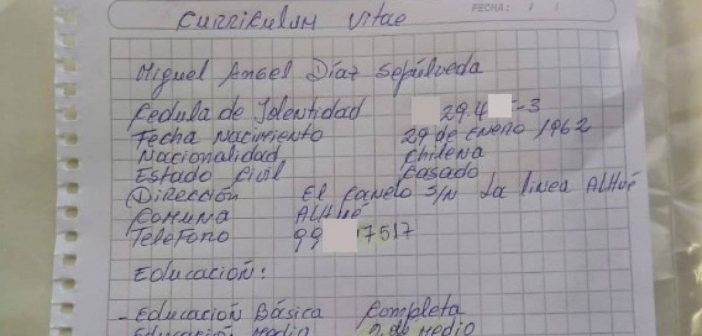 FECHA: / /
Curriculum Vitae
Miguel Angel Díaz Sepúlveda
Cedula de Identidad 29.4 -3
Fecha Nacimiento 29 de Enero 1962
Nacionalidad Chilena
Estado Civil Casado
Dirección El Canelo S/N La Linea ALHUÉ
Comuna ALHUÉ
Telefono 99 17517
Educación:
- Educación Básica Completa
Educación Medio 2º de Medio